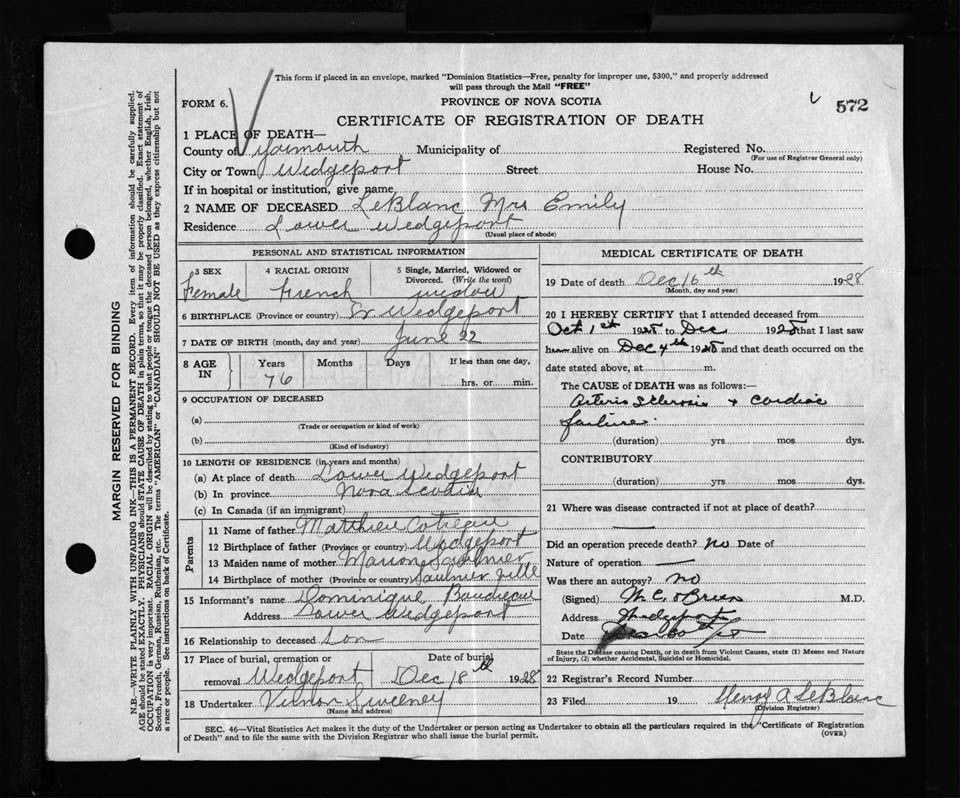 This form if placed in an envelope, marked "Dominion Statistics—Free, penalty for improper use, $300," and properly addressed
will pass through the Mail "FREE"
FORM 6.
PROVINCE OF NOVA SCOTIA
572
CERTIFICATE OF REGISTRATION OF DEATH
1 PLACE OF DEATH—
County of Yarmouth Municipality of Registered No.
(For use of Registrar General only)
City or Town Wedgeport Street House No.
If in hospital or institution, give name
2 NAME OF DECEASED LeBlanc Mrs Emily
Residence Lower Wedgeport
(Usual place of abode)
PERSONAL AND STATISTICAL INFORMATION
3 SEX 4 RACIAL ORIGIN 5 Single, Married, Widowed or
Divorced. (Write the word)
Female French widow
6 BIRTHPLACE (Province or country) Lr Wedgeport
7 DATE OF BIRTH (month, day and year) June 22
8 AGE IN Years Months Days If less than one day,
76 hrs. or min.
9 OCCUPATION OF DECEASED
(a)
(Trade or occupation or kind of work)
(b)
(Kind of industry)
10 LENGTH OF RESIDENCE (in years and months)
(a) At place of death Lower Wedgeport
(b) In province Nova Scotia
(c) In Canada (if an immigrant)
Parents
11 Name of father Matthieu
12 Birthplace of father (Province or country) Wedgeport
13 Maiden name of mother Marion Saulnier
14 Birthplace of mother (Province or country) Saulnierville
15 Informant's name Dominique Boudreau
Address Lower Wedgeport
16 Relationship to deceased Son
17 Place of burial, cremation or removal Date of burial
Wedgeport Dec 18th 1928
18 Undertaker Vernon Sweeney
(Name and address)
MEDICAL CERTIFICATE OF DEATH
19 Date of death Dec 16th 1928
(Month, day and year)
20 I HEREBY CERTIFY that I attended deceased from
Oct 1st 1928 to Dec 1928 that I last saw
him alive on Dec 4th 1928 and that death occurred on the
date stated above, at m.
The CAUSE of DEATH was as follows:—
Arterio Sclerosis + cardiac
failure
(duration) yrs mos dys.
CONTRIBUTORY
(duration) yrs. mos. dys.
21 Where was disease contracted if not at place of death?
Did an operation precede death? no Date of
Nature of operation
Was there an autopsy? no
(Signed) M.C. O'Brien M.D.
Address Wedgeport
Date
State the Disease causing Death, or in death from Violent Causes, state (1) Means and Nature
of Injury, (2) whether Accidental, Suicidal or Homicidal.
22 Registrar's Record Number
23 Filed 19 Henry A LeBlanc
(Division Registrar)
SEC. 46—Vital Statistics Act makes it the duty of the Undertaker or person acting as Undertaker to obtain all the particulars required in the "Certificate of Registration
of Death" and to file the same with the Division Registrar who shall issue the burial permit.
(OVER)
MARGIN RESERVED FOR BINDING
N.B.—WRITE PLAINLY WITH UNFADING INK—THIS IS A PERMANENT RECORD. Every item of information should be carefully supplied.
AGE should be stated EXACTLY. PHYSICIANS should STATE CAUSE OF DEATH in plain terms, so that it may be properly classified. Exact statement of
OCCUPATION is very important. RACIAL ORIGIN will be described by stating to what people or tongue the deceased person belonged, whether English, Irish,
Scotch, French, German, Russian, Ruthenian, etc. The terms "AMERICAN" or "CANADIAN" SHOULD NOT BE USED as they express citizenship but not
a race or people. See instructions on back of Certificate.